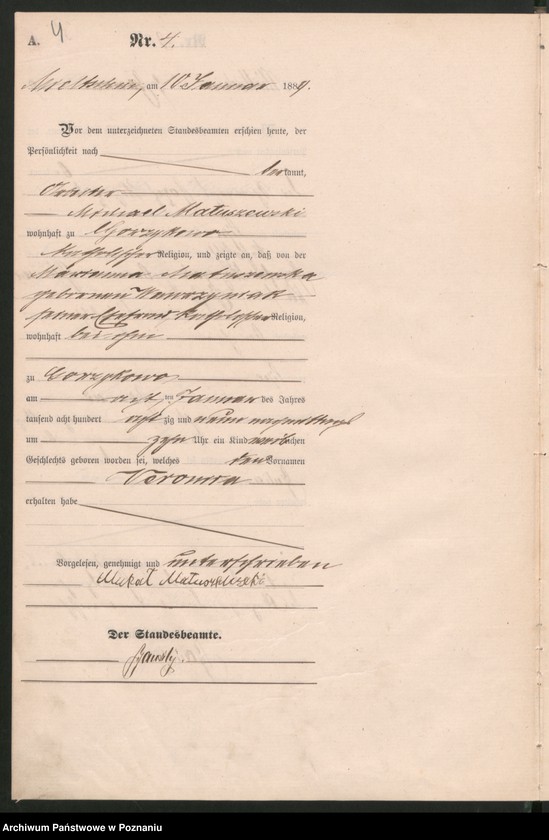 A. 4 Nr. 4.
am 10 Januar 1889.
Vor dem unterzeichneten Standesbeamten erschien heute, der
Persönlichkeit nach
bekannt,
Michael Matuszewski
wohnhaft zu Gorzykowo
katholischer Religion, und zeigte an, daß von der
Marianna Matuszewska
geborenen Wawrzyniak
seiner Ehefrau katholischer Religion,
wohnhaft bei ihm
zu Gorzykowo
am acht ten Januar des Jahres
tausend acht hundert acht zig und neun
um zehn Uhr ein Kind weiblichen
Geschlechts geboren worden sei, welches den Vornamen
Veronika
erhalten habe
Vorgelesen, genehmigt und unterschrieben
Matuszewski
Der Standesbeamte.
Archiwum Państwowe w Poznaniu